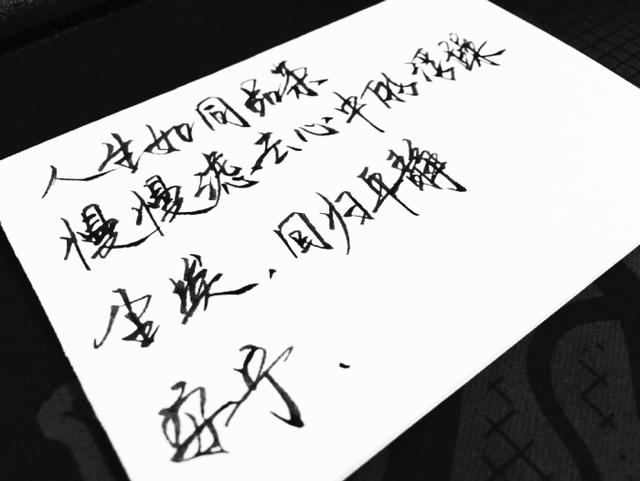 人生如同品茶
慢慢滤去心中的浮躁
尘埃，回归平静
安宁.